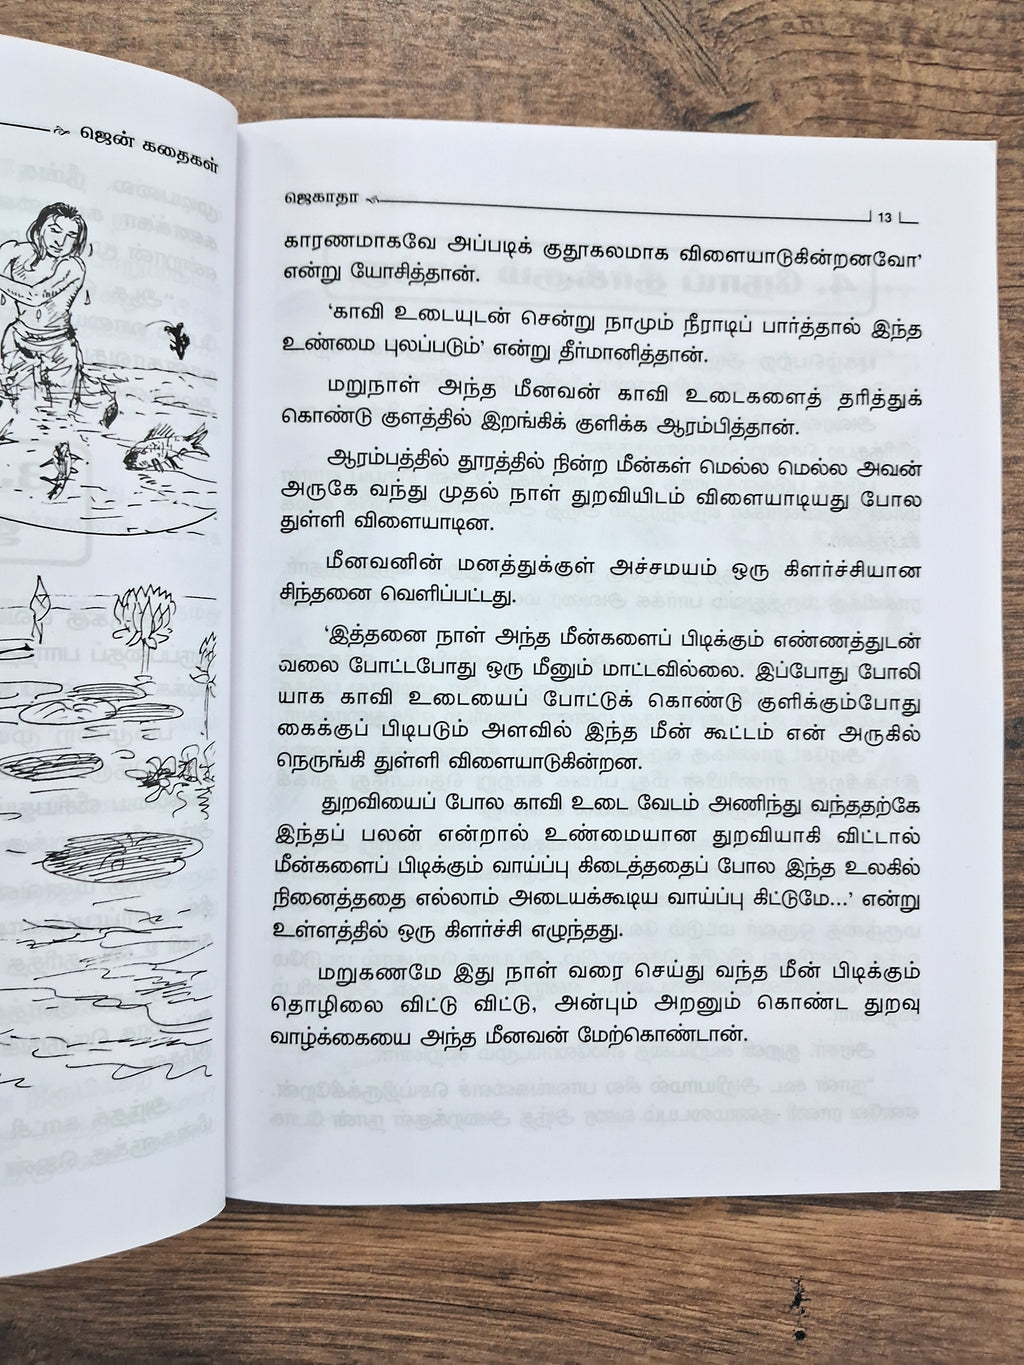 ஜென் கதைகள்
ஜெகாதா
13
காரணமாகவே அப்படிக் குதூகலமாக விளையாடுகின்றனவோ’
என்று யோசித்தான்.
‘காவி உடையுடன் சென்று நாமும் நீராடிப் பார்த்தால் இந்த
உண்மை புலப்படும்’ என்று தீர்மானித்தான்.
மறுநாள் அந்த மீனவன் காவி உடைகளைத் தரித்துக்
கொண்டு குளத்தில் இறங்கிக் குளிக்க ஆரம்பித்தான்.
ஆரம்பத்தில் தூரத்தில் நின்ற மீன்கள் மெல்ல மெல்ல அவன்
அருகே வந்து முதல் நாள் துறவியிடம் விளையாடியது போல
துள்ளி விளையாடின.
மீனவனின் மனத்துக்குள் அச்சமயம் ஒரு கிளர்ச்சியான
சிந்தனை வெளிப்பட்டது.
‘இத்தனை நாள் அந்த மீன்களைப் பிடிக்கும் எண்ணத்துடன்
வலை போட்டபோது ஒரு மீனும் மாட்டவில்லை. இப்போது போலி
யாக காவி உடையைப் போட்டுக் கொண்டு குளிக்கும்போது
கைக்குப் பிடிபடும் அளவில் இந்த மீன் கூட்டம் என் அருகில்
நெருங்கி துள்ளி விளையாடுகின்றன.
துறவியைப் போல காவி உடை வேடம் அணிந்து வந்ததற்கே
இந்தப் பலன் என்றால் உண்மையான துறவியாகி விட்டால்
மீன்களைப் பிடிக்கும் வாய்ப்பு கிடைத்ததைப் போல இந்த உலகில்
நினைத்ததை எல்லாம் அடையக்கூடிய வாய்ப்பு கிட்டுமே...’ என்று
உள்ளத்தில் ஒரு கிளர்ச்சி எழுந்தது.
மறுகணமே இது நாள் வரை செய்து வந்த மீன் பிடிக்கும்
தொழிலை விட்டு விட்டு, அன்பும் அறனும் கொண்ட துறவு
வாழ்க்கையை அந்த மீனவன் மேற்கொண்டான்.